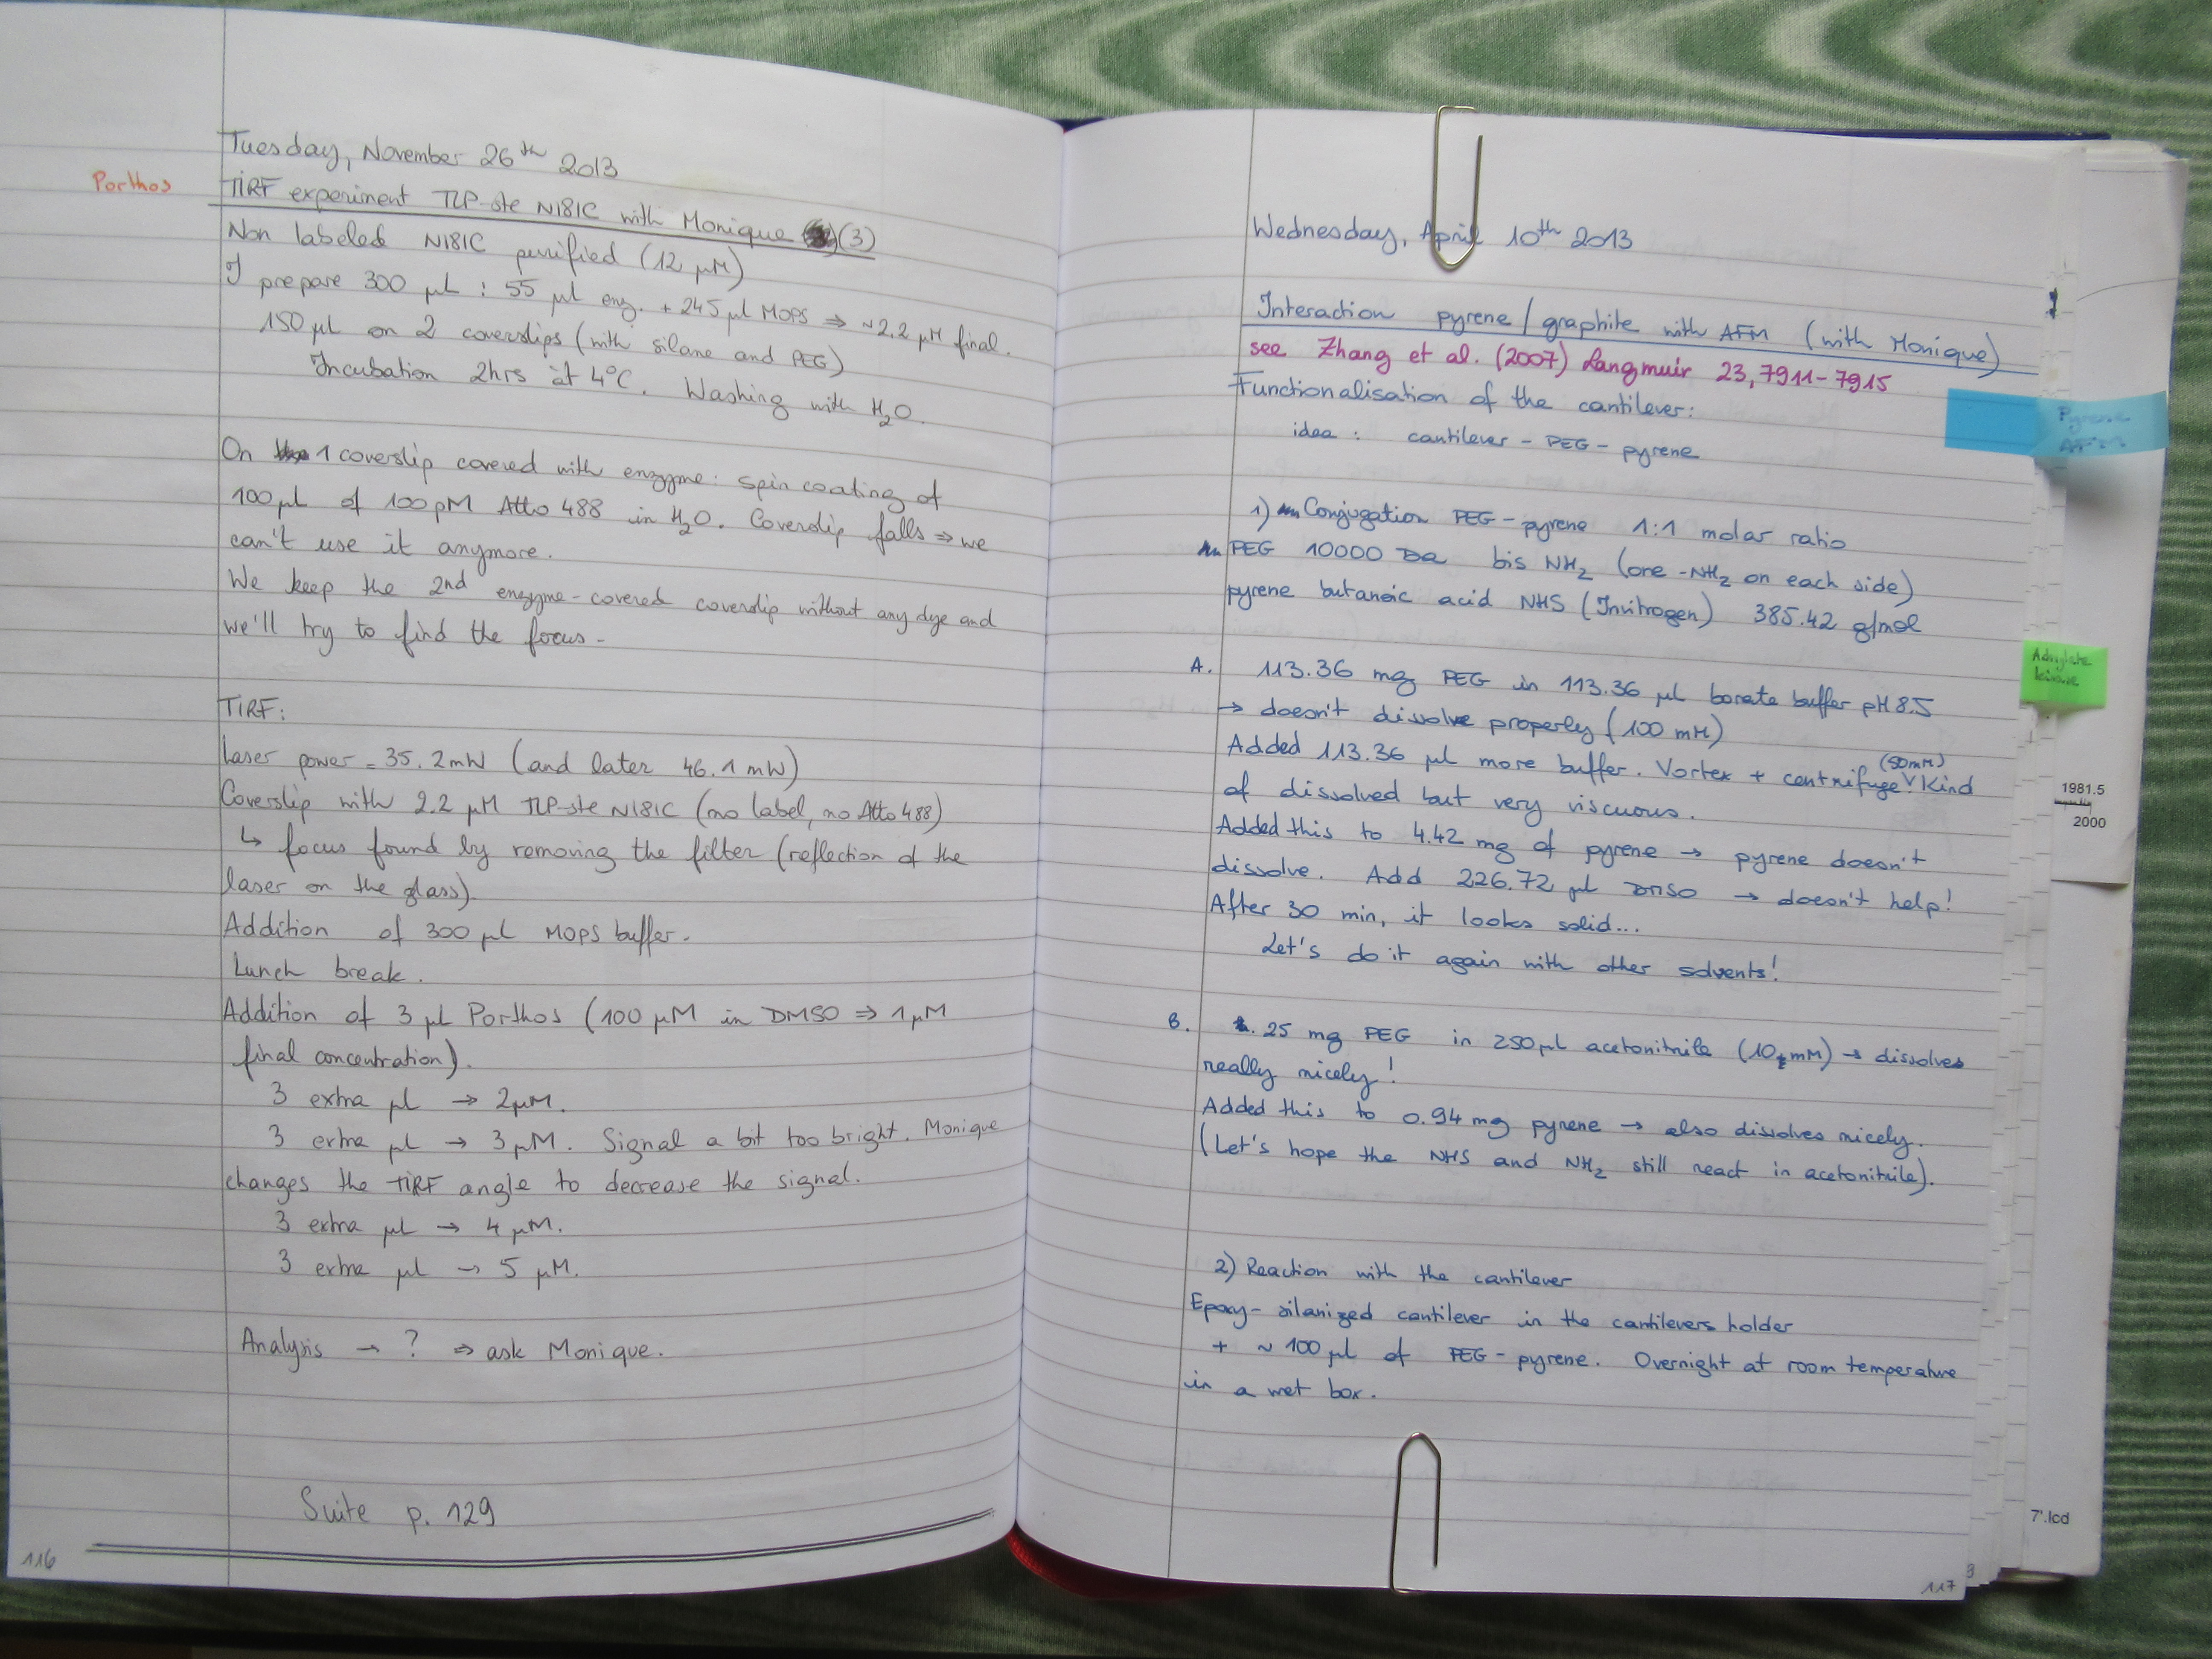 Tuesday, November 26th 2013
Porthos
TIRF experiment TLP-ste N181C with Monique (3)
Non labeled N181C purified (12 µM)
I prepare 300 µl : 55 µl enz. + 245 µl MOPS ⇒ ~2.2 µM final.
150 µl on 2 coverslips (with silane and PEG)
Incubation 2hrs at 4°C. Washing with H2O.
On 1 coverslip covered with enzyme: spin coating of
100 µl of 100 pM Atto 488 in H2O. Coverslip falls ⇒ we
can't use it anymore.
We keep the 2nd enzyme-covered coverslip without any dye and
we'll try to find the focus -
TIRF:
Laser power = 35.2mW (and later 46.1 mW)
Coverslip with 2.2 µM TLP-ste N181C (no label, no Atto 488)
↳ focus found by removing the filter (reflection of the
laser on the glass).
Addition of 300 µl MOPS buffer.
Lunch break.
Addition of 3 µl Porthos (100 µM in DMSO ⇒ 1 µM
final concentration).
3 extra µl → 2µM.
3 extra µl → 3 µM. Signal a bit too bright. Monique
changes the TIRF angle to decrease the signal.
3 extra µl → 4 µM.
3 extra µl → 5 µM.
Analysis → ? ⇒ ask Monique.
Suite p. 129
116
Wednesday, April 10th 2013
Interaction pyrene / graphite with AFM (with Monique)
see Zhang et al. (2007) Langmuir 23, 7911-7915
Functionalisation of the cantilever:
idea : cantilever - PEG - pyrene
1) Conjugation PEG - pyrene 1:1 molar ratio
PEG 10000 Da bis NH2 (one -NH2 on each side)
pyrene butanoic acid NHS (Invitrogen) 385.42 g/mol
A. 113.36 mg PEG in 113.36 µl borate buffer pH 8.5
→ doesn't dissolve properly (100 mM)
Added 113.36 µl more buffer. Vortex + centrifuge. (50mM) Kind
of dissolved but very viscuous.
Added this to 4.42 mg of pyrene → pyrene doesn't
dissolve. Add 226.72 µl DMSO → doesn't help!
After 30 min, it looks solid...
Let's do it again with other solvents!
B. 25 mg PEG in 250 µl acetonitrile (10 mM) → dissolves
really nicely!
Added this to 0.94 mg pyrene → also dissolves nicely.
(Let's hope the NHS and NH2 still react in acetonitrile).
2) Reaction with the cantilever
Epoxy-silanized cantilever in the cantilevers holder
+ ~ 100 µl of PEG - pyrene. Overnight at room temperature
in a wet box.
117
Pyrene
AFM
Adenylate
kinase
1981.5
2000
7'.lcd
3